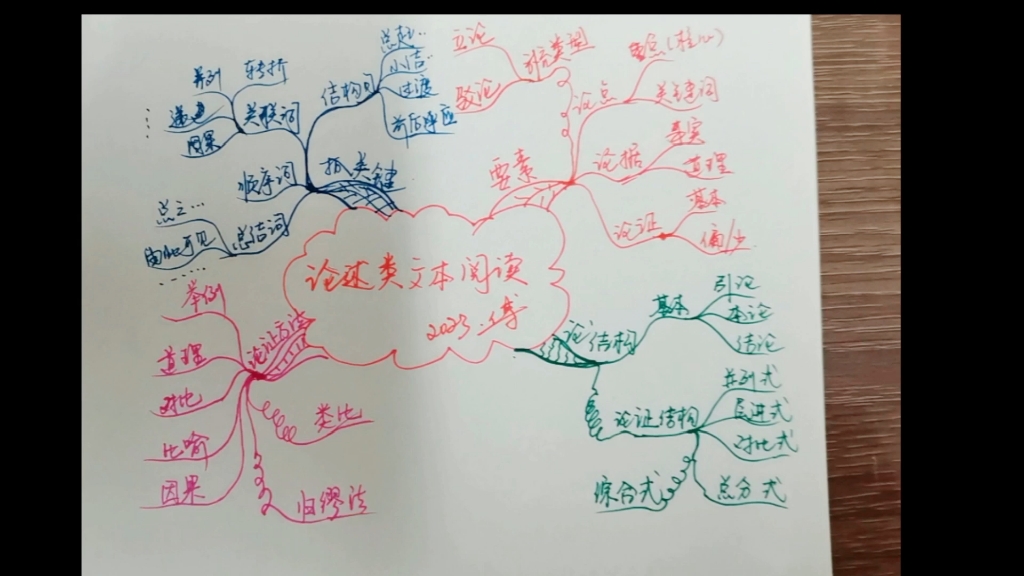 论述类文本阅读
2023.
抓关键
结构句
总起…
小结…
过渡
前后呼应
关联词
并列
转折
递进
因果
……
顺序词
总结词
总之…
由此可见
……
要素
论点
立论
驳论
观点(核心)
关键词
论据
事实
道理
论证
基本
偏/少
结构
基本
引论
本论
结论
论证结构
并列式
层进式
对比式
总分式
综合式
论证方法
举例
道理
对比
比喻
因果
类比
归谬法